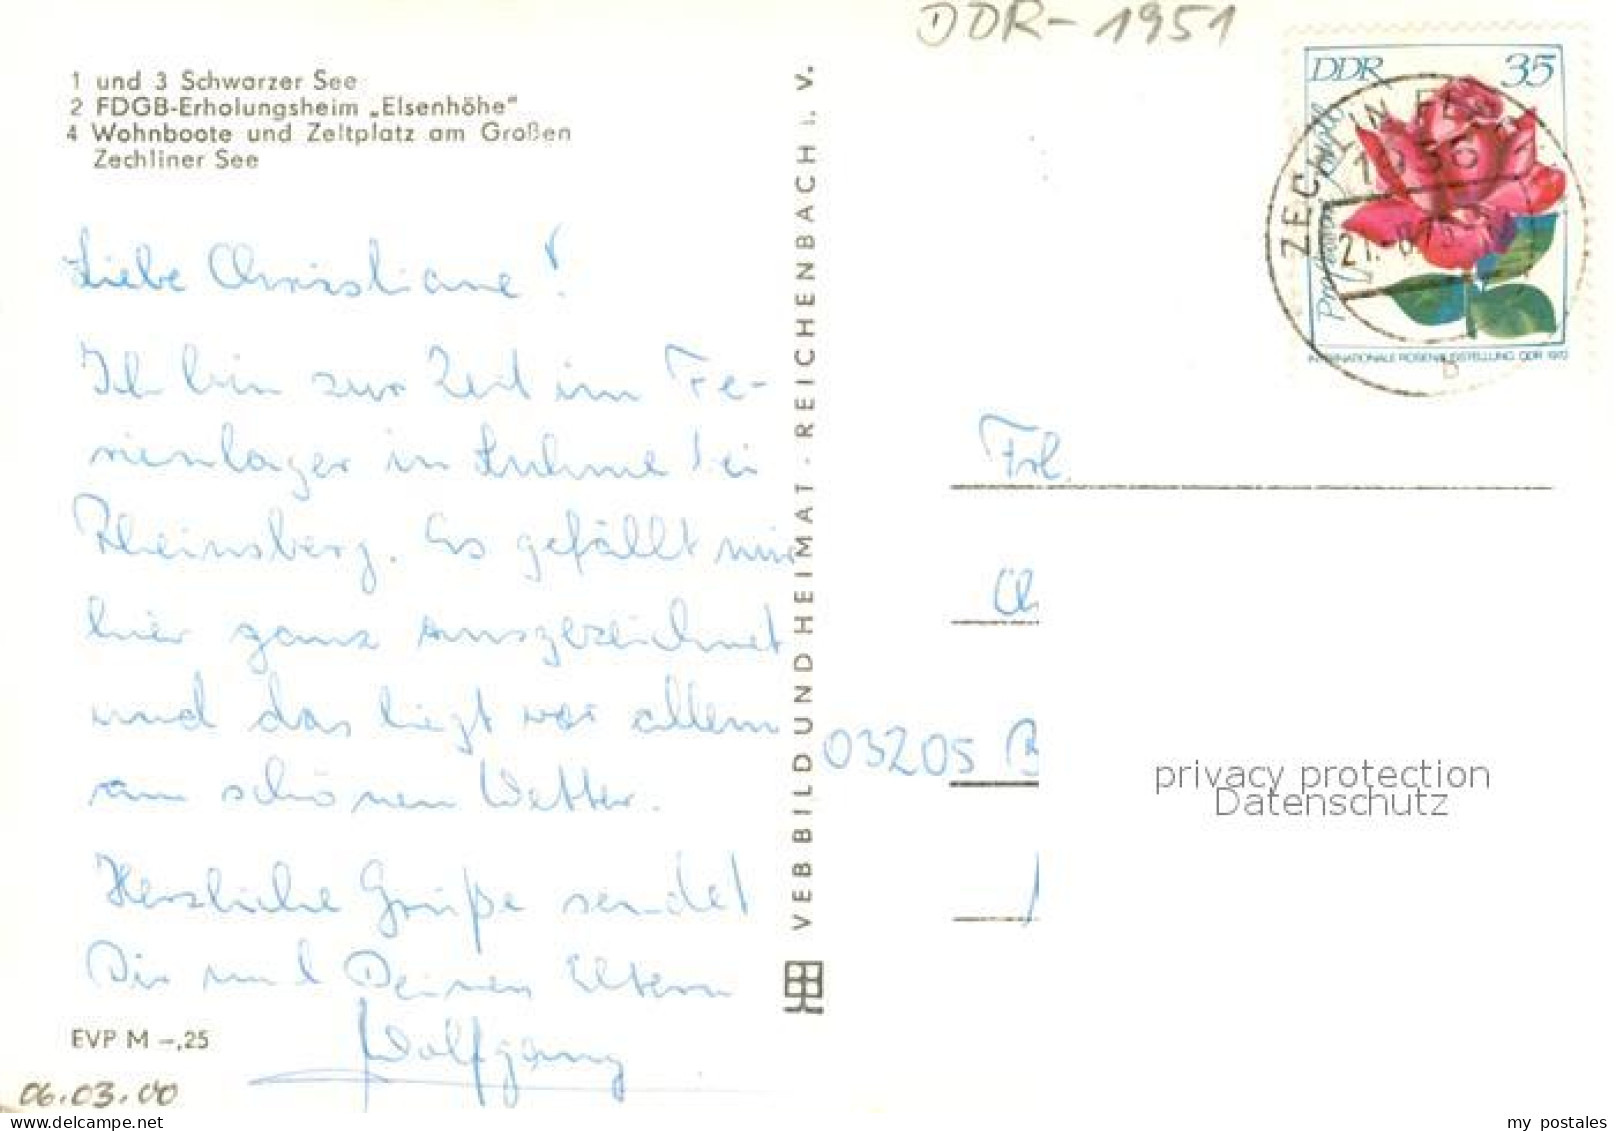 DDR-1951
1 und 3 Schwarzer See
2 FDGB-Erholungsheim „Elsenhöhe"
4 Wohnboote und Zeltplatz am Großen
Zechliner See
Liebe Christiane!
Ich bin zur Zeit im Fe-
rienlager in Luhme bei
Rheinsberg. Es gefällt mir
hier ganz ausgezeichnet
und das liegt vor allem
am schönen Wetter.
Herzliche Grüße sendet
Dir und Deinen Eltern
Wolfgang
EVP M –,25
06.03.00
VEB BILD UND HEIMAT · REICHENBACH i. V.
DDR 35
INTERNATIONALE ROSENAUSSTELLUNG DDR 1972
ZECHLIN
B
Frl.
Ch
03205 B
privacy protection
Datenschutz
my postales